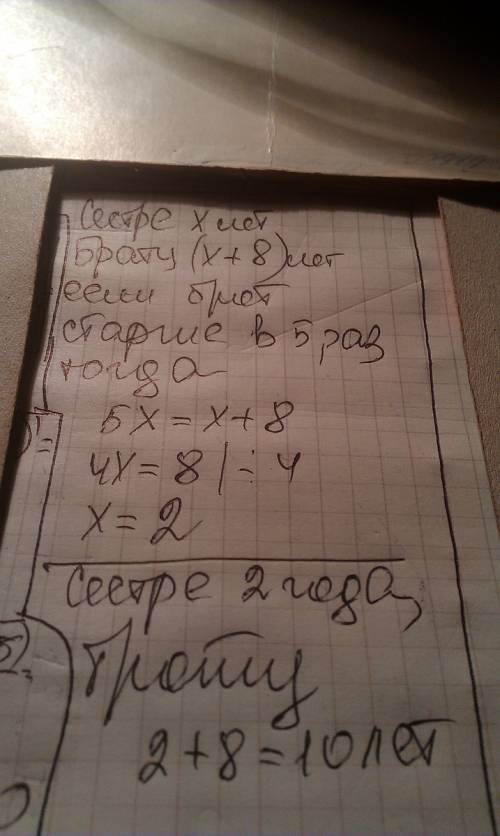 Сестре x лет
Брату (x+8) лет
если брат
старше в 5 раз
тогда
5x = x + 8
4x = 8 | ÷ 4
x = 2
Сестре 2 года,
брату
2 + 8 = 10 лет